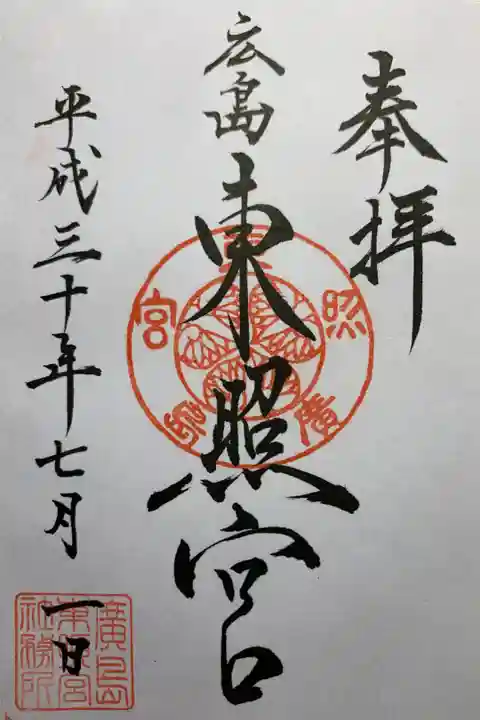 奉拝
広島
東照宮
平成三十年七月一日
東照宮廣島
廣島東照宮社務所